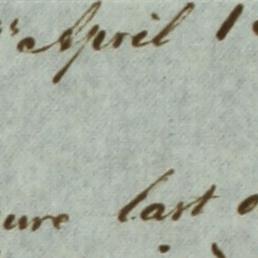 April 1
ure last